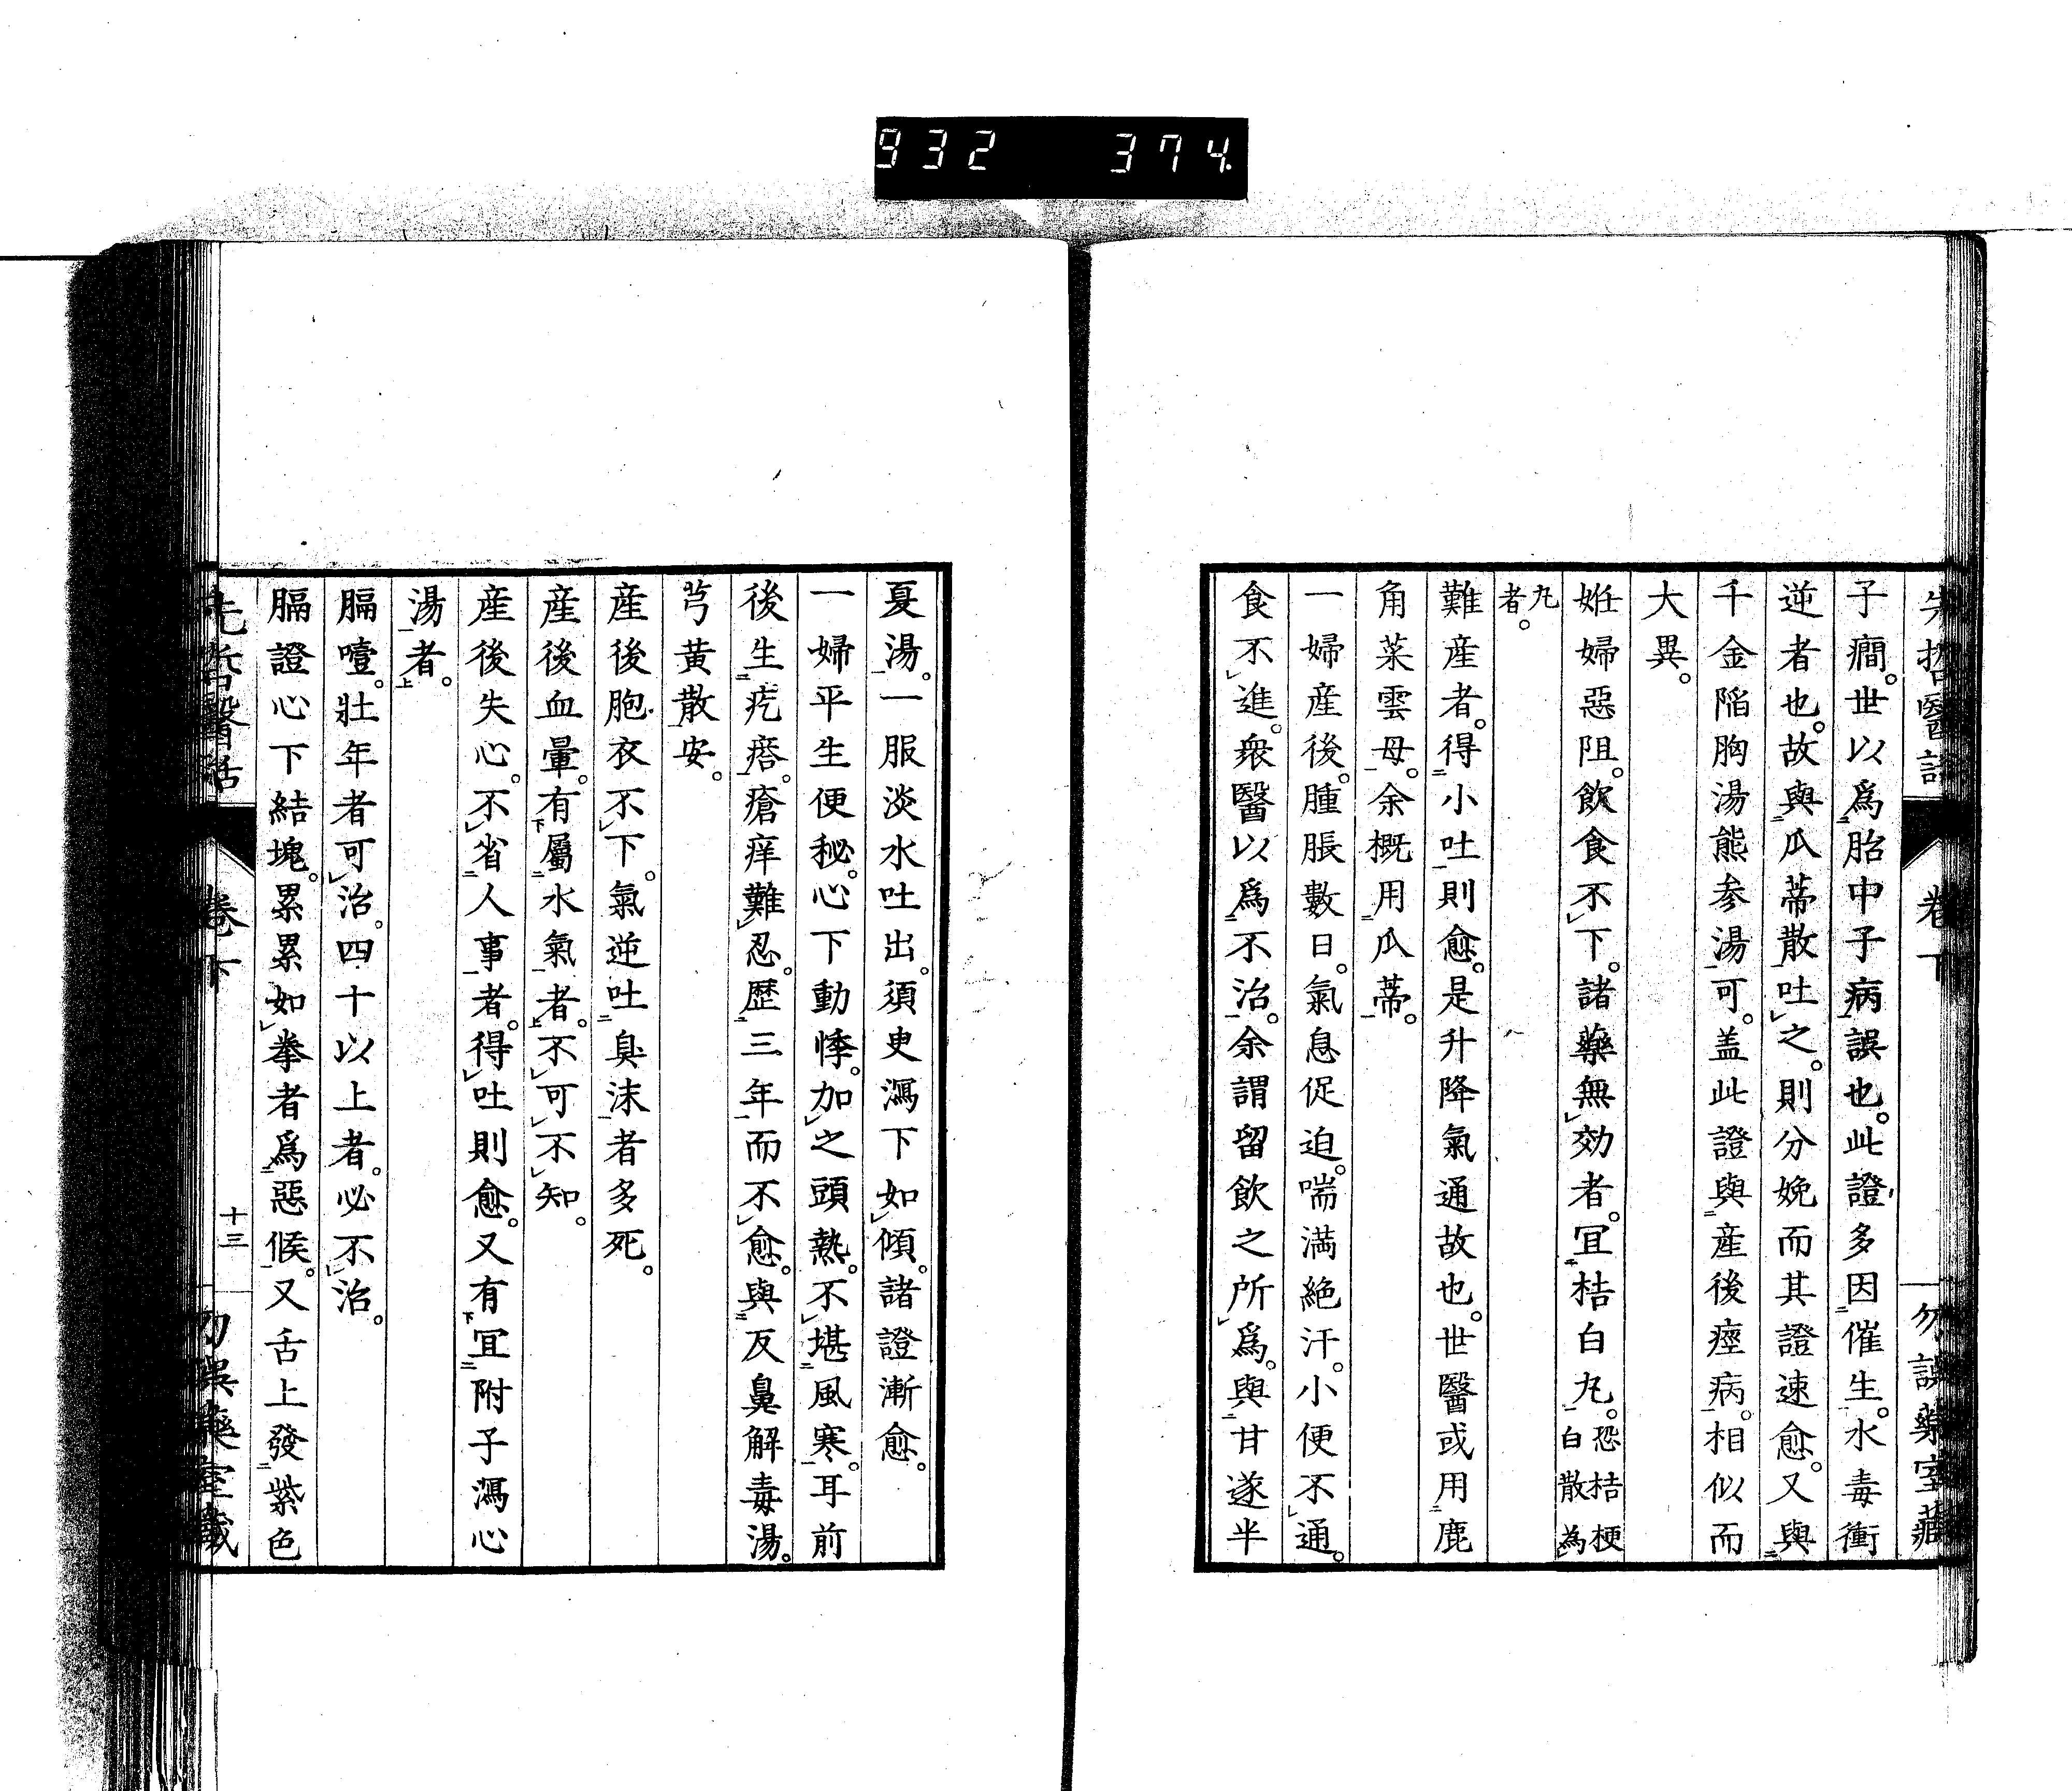 932 374.
先哲醫話 卷下 勿誤藥室藏
子癇。世以爲胎中子病誤也。此證多因催生。水毒衝
逆者也。故與瓜蒂散吐之。則分娩而其證速愈。又與
千金陷胸湯熊参湯可。盖此證與産後痙病。相似而
大異。
姙婦惡阻。飲食不下。諸藥無効者。冝桔白丸。恐桔梗白散為
丸者。
難産者。得小吐則愈。是升降氣通故也。世醫或用鹿
角菜雲母。余概用瓜蒂。
一婦産後。腫脹數日。氣息促迫。喘満絶汗。小便不通。
食不進。衆醫以爲不治。余謂留飲之所爲。與甘遂半
夏湯。一服淡水吐出。須臾瀉下如傾。諸證漸愈。
一婦平生便秘。心下動悸。加之頭熱。不堪風寒。耳前
後生疙瘩。瘡痒難忍。歴三年而不愈。與反鼻解毒湯。
芎黄散安。
産後胞衣不下。氣逆吐臭沫者多死。
産後血暈。有屬水氣者。不可不知。
産後失心。不省人事者。得吐則愈。又有冝附子瀉心
湯者。
膈噎。壯年者可治。四十以上者。必不治。
膈證心下結塊。累累如拳者爲惡候。又舌上發紫色
先哲醫話 卷下 十三 勿誤藥室藏